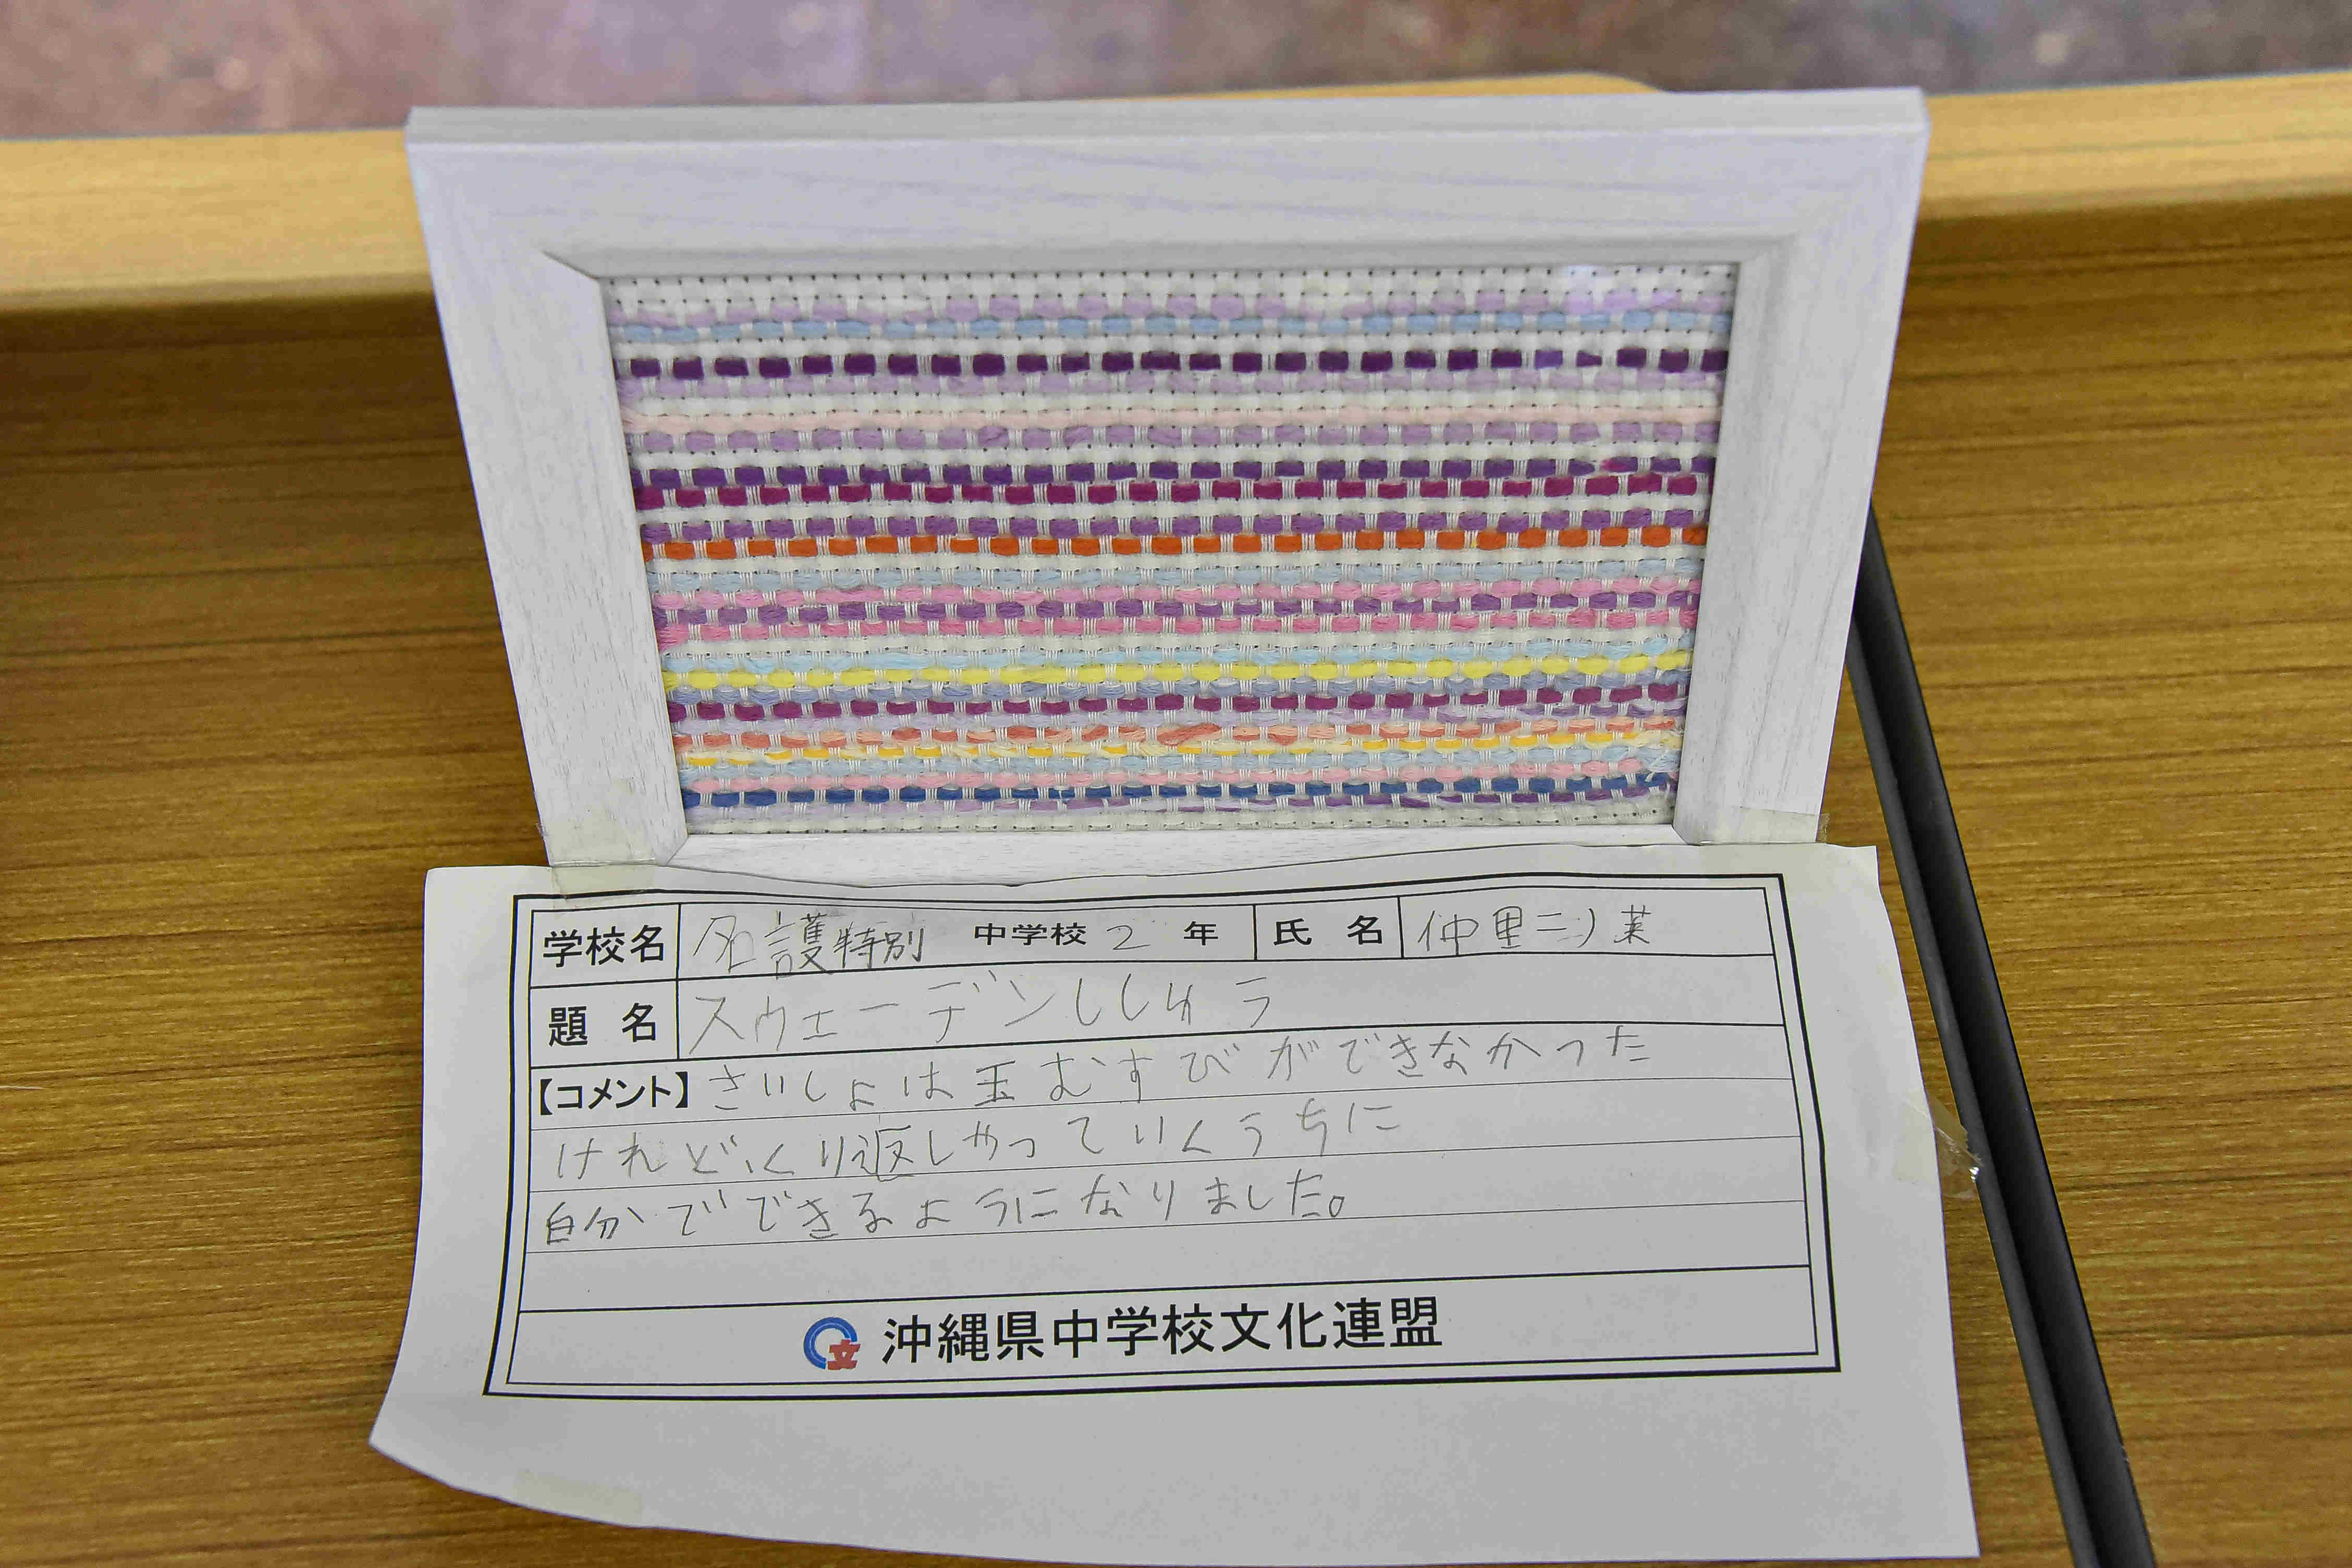 学校名 名護特別 中学校 2 年 氏 名 仲里
題 名 スウェーデンししゅう
【コメント】さいしょは玉むすびができなかった
けれど、くり返しやっていくうちに
自分でできるようになりました。
立 沖縄県中学校文化連盟